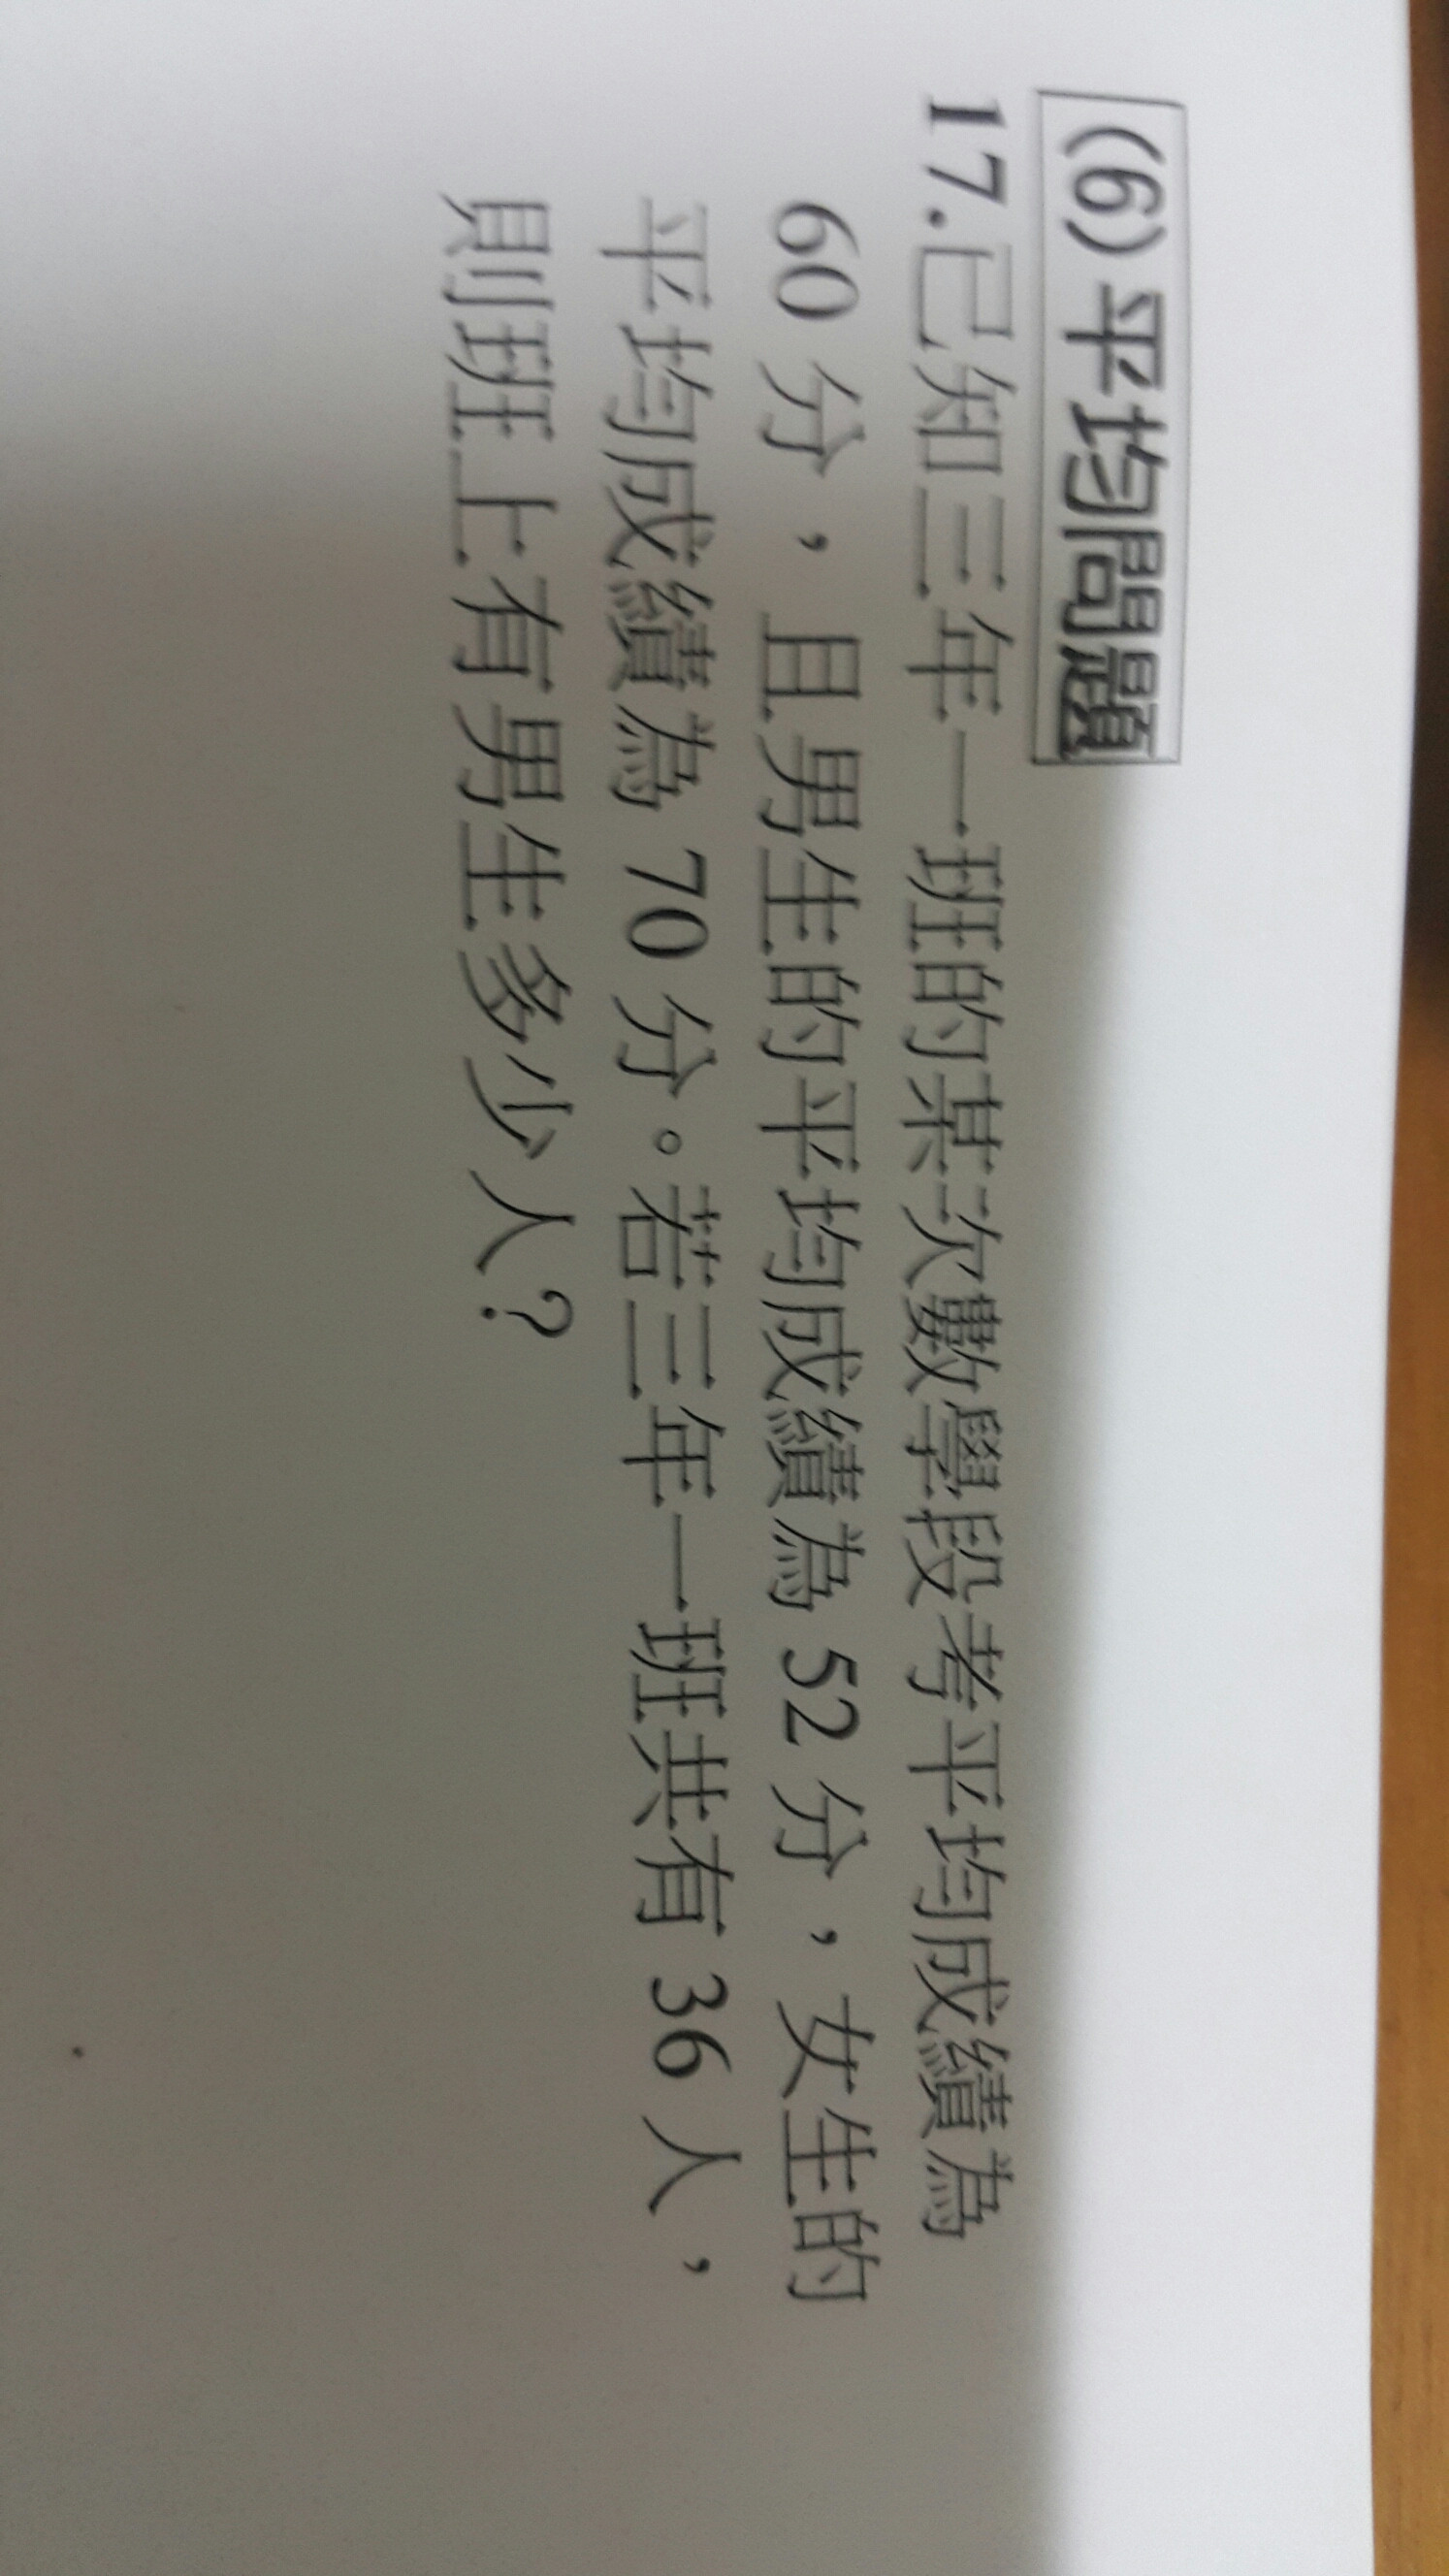 (6)平均問題
17.已知三年一班的某次數學段考平均成績為
60 分，且男生的平均成績為 52 分，女生的
平均成績為 70 分。若三年一班共有 36 人，
則班上有男生多少人？